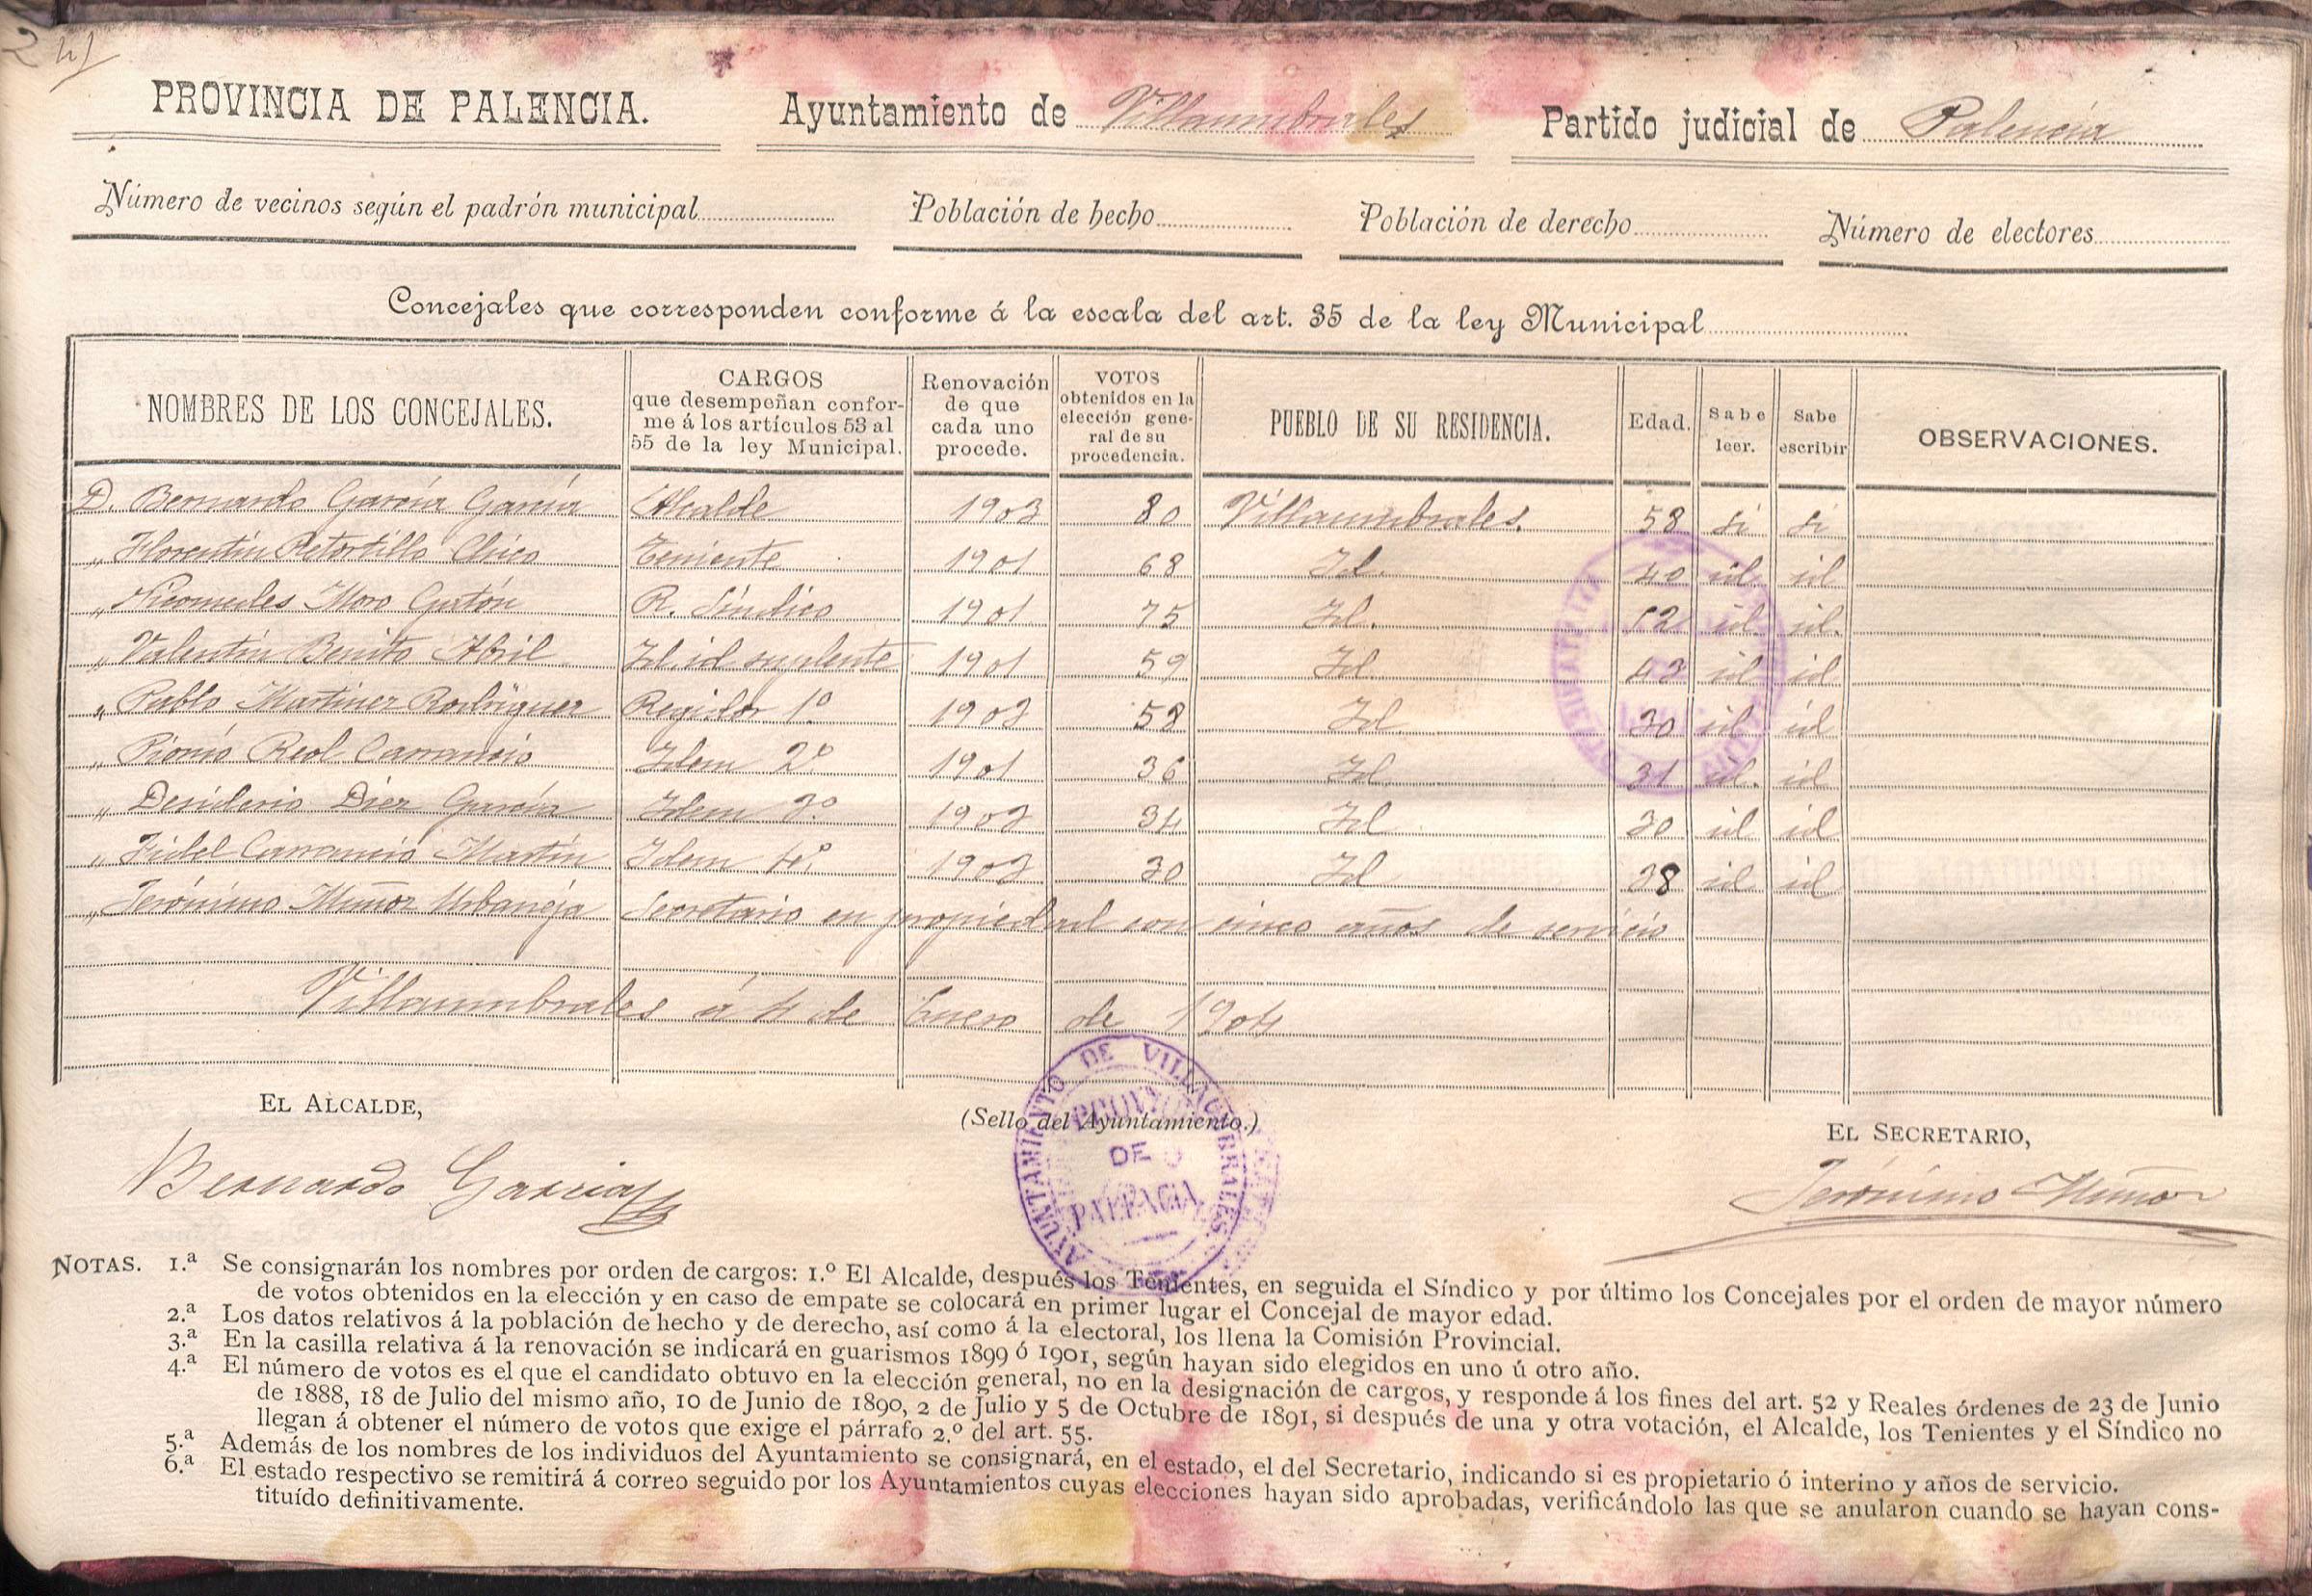 241
PROVINCIA DE PALENCIA. Ayuntamiento de Villaumbrales Partido judicial de Palencia
Número de vecinos según el padrón municipal Población de hecho Población de derecho Número de electores
Concejales que corresponden conforme á la escala del art. 35 de la ley Municipal
NOMBRES DE LOS CONCEJALES. CARGOS que desempeñan conforme á los artículos 53 al 55 de la ley Municipal. Renovación de que cada uno procede. VOTOS obtenidos en la elección general de su procedencia. PUEBLO DE SU RESIDENCIA. Edad. Sabe leer. Sabe escribir OBSERVACIONES.
D. Bernardo García García Alcalde 1903 80 Villaumbrales. 58 si si
„ Florentín Retortillo Chico Teniente 1901 68 Id. 40 id. id
„ Nicomedes Moro Gutón R. Síndico 1901 75 Id. 52 id. id.
„ Valentín Benito Abril Id. id suplente 1901 59 Id. 43 id id
„ Pablo Martinez Rodríguez Regidor 1º 1903 58 Id. 30 id id
„ Pionio Reol Carrancio Idem 2º 1901 36 Id 31 id. id
„ Desiderio Diez García Idem 3º 1903 34 Id 30 id id
„ Fidel Carrancio Martín Idem 4º. 1903 30 Id 38 id id
„ Jerónimo Muñoz Urbaneja Secretario en propiedad con cinco años de servicio
Villaumbrales á 4 de Enero de 1904
EL ALCALDE, (Sello del Ayuntamiento.) EL SECRETARIO,
AYUNTAMIENTO DE VILLAUMBRALES
DE
Bernardo García Jerónimo Muñoz
NOTAS. 1.ª Se consignarán los nombres por orden de cargos: 1.º El Alcalde, después los Tenientes, en seguida el Síndico y por último los Concejales por el orden de mayor número
de votos obtenidos en la elección y en caso de empate se colocará en primer lugar el Concejal de mayor edad.
2.ª Los datos relativos á la población de hecho y de derecho, así como á la electoral, los llena la Comisión Provincial.
3.ª En la casilla relativa á la renovación se indicará en guarismos 1899 ó 1901, según hayan sido elegidos en uno ú otro año.
4.ª El número de votos es el que el candidato obtuvo en la elección general, no en la designación de cargos, y responde á los fines del art. 52 y Reales órdenes de 23 de Junio
de 1888, 18 de Julio del mismo año, 10 de Junio de 1890, 2 de Julio y 5 de Octubre de 1891, si después de una y otra votación, el Alcalde, los Tenientes y el Síndico no
llegan á obtener el número de votos que exige el párrafo 2.º del art. 55.
5.ª Además de los nombres de los individuos del Ayuntamiento se consignará, en el estado, el del Secretario, indicando si es propietario ó interino y años de servicio.
6.ª El estado respectivo se remitirá á correo seguido por los Ayuntamientos cuyas elecciones hayan sido aprobadas, verificándolo las que se anularon cuando se hayan cons-
tituído definitivamente.